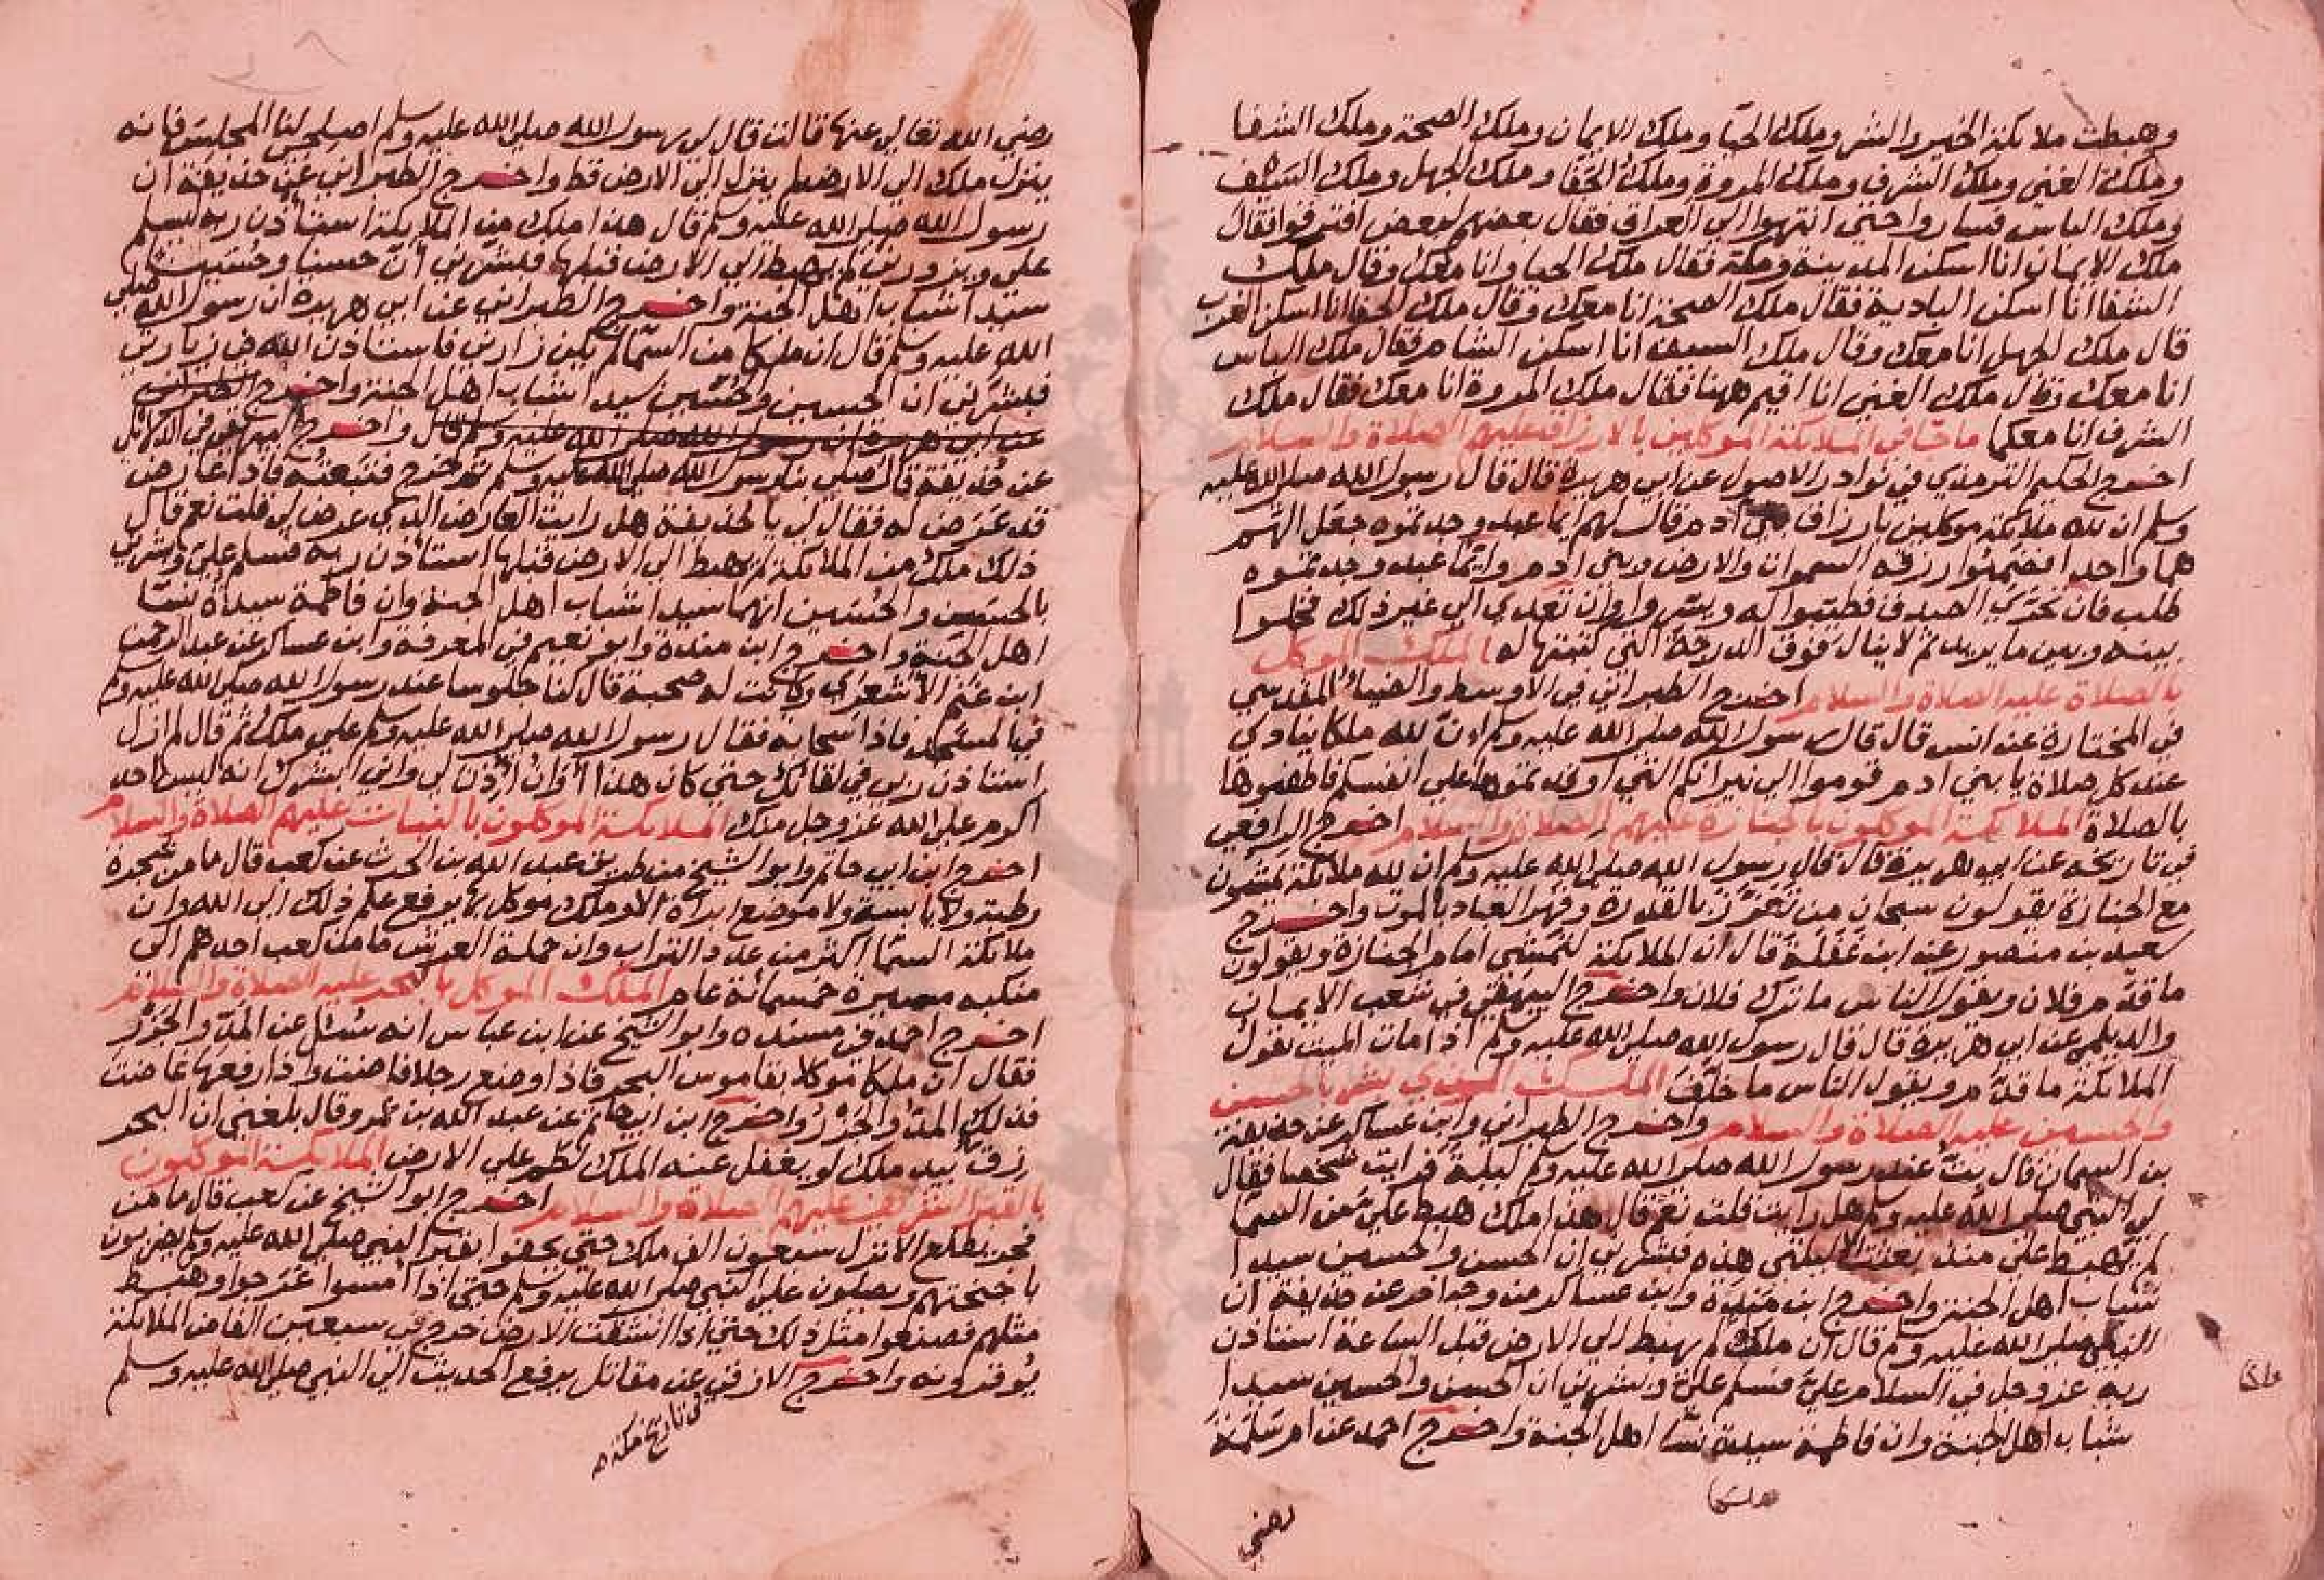 وهبطت ملائكة الخير والشر وملك الحيا وملك الايمان وملك الصحة وملك الشفا
وملك الغنى وملك الشرف وملك المروة وملك الجفا وملك الجهل وملك السيف
وملك الباس فساروا حتى انتهوا الي العراق فقال بعضهم لبعض افترقوا فقال
ملك الايمان انا اسكن المدينة ومكة فقال ملك الحيا وانا معك وقال ملك
الشفا انا اسكن البادية فقال ملك الصحة انا معك وقال ملك الجفا انا اسكن الغرب
قال ملك الجهل انا معك وقال ملك السيف انا اسكن الشام فقال ملك الباس
انا معك وقال ملك الغنى انا اقيم ههنا فقال ملك المروة انا معك فقال ملك
الشرف انا معكما ما جا في الملائكة الموكلين بالارزاق عليهم الصلاة والسلام
اخرج الحكيم الترمذي في نوادر الاصول عن ابي هريرة قال قال رسول الله صلى الله عليه
وسلم ان لله ملائكة موكلين بارزاق بني ادم قال لهم ايما عبد وجدتموه جعل الهم
هما واحدا فضمنوا رزقه السموات والارض وبني ادم وايما عبد وجدتموه
طلب فان تحرى الصدق فطيبوا له ويسروا وان تعدي الي غير ذلك فخلوا
بينه وبين ما يريد ثم لا ينال فوق الدرجة التي كتبتها له الملك الموكل
بالصلاة عليه الصلاة والسلام اخرج الطبراني في الاوسط والضياء المقدسي
في المختارة عن انس قال قال رسول الله صلى الله عليه وسلم ان لله ملكا ينادي
عند كل صلاة يا بني ادم قوموا الي نيرانكم التي اوقدتموها علي انفسكم فاطفئوها
بالصلاة الملائكة الموكلون بالجنازة عليهم الصلاة والسلام اخرج الرافعي
في تاريخه عن ابي هريرة قال قال رسول الله صلى الله عليه وسلم ان لله ملائكة يمشون
مع الجنازة يقولون سبحان من تعزز بالقدرة وقهر العباد بالموت واخرج
سعيد بن منصور عن ابن غفلة قال ان الملائكة لتمشي امام الجنازة ويقولون
ما قدم فلان ويقول الناس ما ترك فلان واخرج البيهقي في شعب الايمان
والديلمي عن ابي هريرة قال قال رسول الله صلى الله عليه وسلم اذا مات الميت تقول
الملائكة ما قدم ويقول الناس ما خلف الملك الذي بشر بالحسن
والحسين عليه الصلاة والسلام واخرج الطبراني وابن عساكر عن حذيفة
بن اليمان قال بت عند رسول الله صلى الله عليه وسلم ليلة فرايت شخصا فقال
لي النبي صلى الله عليه وسلم هل رايت قلت نعم قال هذا ملك هبط علي من السما
لم يهبط علي منذ بعثت الا ليلتي هذه فبشرني ان الحسن والحسين سيدا
شباب اهل الجنة واخرج ابن مندة وابن عساكر من وجه اخر عن حذيفة ان
النبي صلى الله عليه وسلم قال ان ملكا لم يهبط الي الارض قبل الساعة استاذن
ربه عز وجل في السلام علي فسلم علي وبشرني ان الحسن والحسين سيدا
شباب اهل الجنة وان فاطمة سيدة نساء اهل الجنة واخرج احمد عن ام سلمة
رضي
رضي الله تعالي عنها قالت قال لي رسول الله صلى الله عليه وسلم اصلحي لنا المجلس فانه
ينزل ملك الي الارض لم ينزل الي الارض قط واخرج الطبراني عن حذيفة ان
رسول الله صلى الله عليه وسلم قال هذا ملك من الملائكة استاذن ربه ليسلم
علي ويزورني لم يهبط الي الارض قبلها فبشرني ان حسنا وحسينا
سيدا شباب اهل الجنة واخرج الطبراني عن ابي هريرة ان رسول الله صلى
الله عليه وسلم قال ان ملكا من السما لم يكن زارني فاستاذن الله في زيارتي
فبشرني ان الحسن والحسين سيدا شباب اهل الجنة واخرج الطبراني
عن ابي هريرة ان رسول الله صلى الله عليه وسلم قال واخرج البيهقي في الدلائل
عن حذيفة قال صلي بنا رسول الله صلى الله عليه وسلم ثم خرج فتبعته فاذا عارض
قد عرض له فقال لي يا حذيفة هل رايت العارض الذي عرض لي قلت نعم قال
ذلك ملك من الملائكة لم يهبط الي الارض قبلها استاذن ربه فسلم علي وبشرني
بالحسن والحسين انهما سيدا شباب اهل الجنة وان فاطمة سيدة نسا
اهل الجنة واخرج ابن مندة وابو نعيم في المعرفة وابن عساكر عن عبد الرحمن
ابن غنم الاشعري وكانت له صحبة قال كنا جلوسا عند رسول الله صلى الله عليه وسلم
في المسجد فاذا سحابة فقال رسول الله صلى الله عليه وسلم سلم علي ملك ثم قال لم ازل
استاذن ربي في لقائك حتى كان هذا اوان اذن لي واني ابشرك انه ليس احد
اكرم علي الله عز وجل منك الملائكة الموكلون بالنبات عليهم الصلاة والسلام
اخرج ابن ابي حاتم وابو الشيخ من طريق عبد الله بن الحرث عن كعب قال ما من شجرة
رطبة ولا يابسة ولا موضع ابرة الا وملك موكل بها يرفع علم ذلك الي الله وان
ملائكة السما اكثر من عدد التراب وان حملة العرش ما من كعب احدهم الي
منكبه مسيرة خمسمائة عام الملك الموكل بالبحر عليه الصلاة والسلام
اخرج احمد في مسنده وابو الشيخ عن ابن عباس انه سئل عن المد والجزر
فقال ان ملكا موكلا بقاموس البحر فاذا وضع رجله فاضت واذا رفعها غاضت
فذلك المد والجزر واخرج ابن ابي حاتم عن عبد الله بن عمرو قال بلغني ان البحر
زق بيد ملك لو يغفل عنه الملك لطم علي الارض الملائكة الموكلون
بالقبر الشريف عليهم الصلاة والسلام اخرج ابو الشيخ عن كعب قال ما من
فجر يطلع الا نزل سبعون الف ملك حتى يحفوا بقبر النبي صلى الله عليه وسلم يضربون
باجنحتهم ويصلون علي النبي صلى الله عليه وسلم حتى اذا امسوا عرجوا وهبط
مثلهم فصنعوا مثل ذلك حتى اذا انشقت الارض خرج في سبعين الفا من الملائكة
يوقرونه واخرج الازرقي عن مقاتل يرفع الحديث الي النبي صلى الله عليه وسلم
في تاريخ مكة